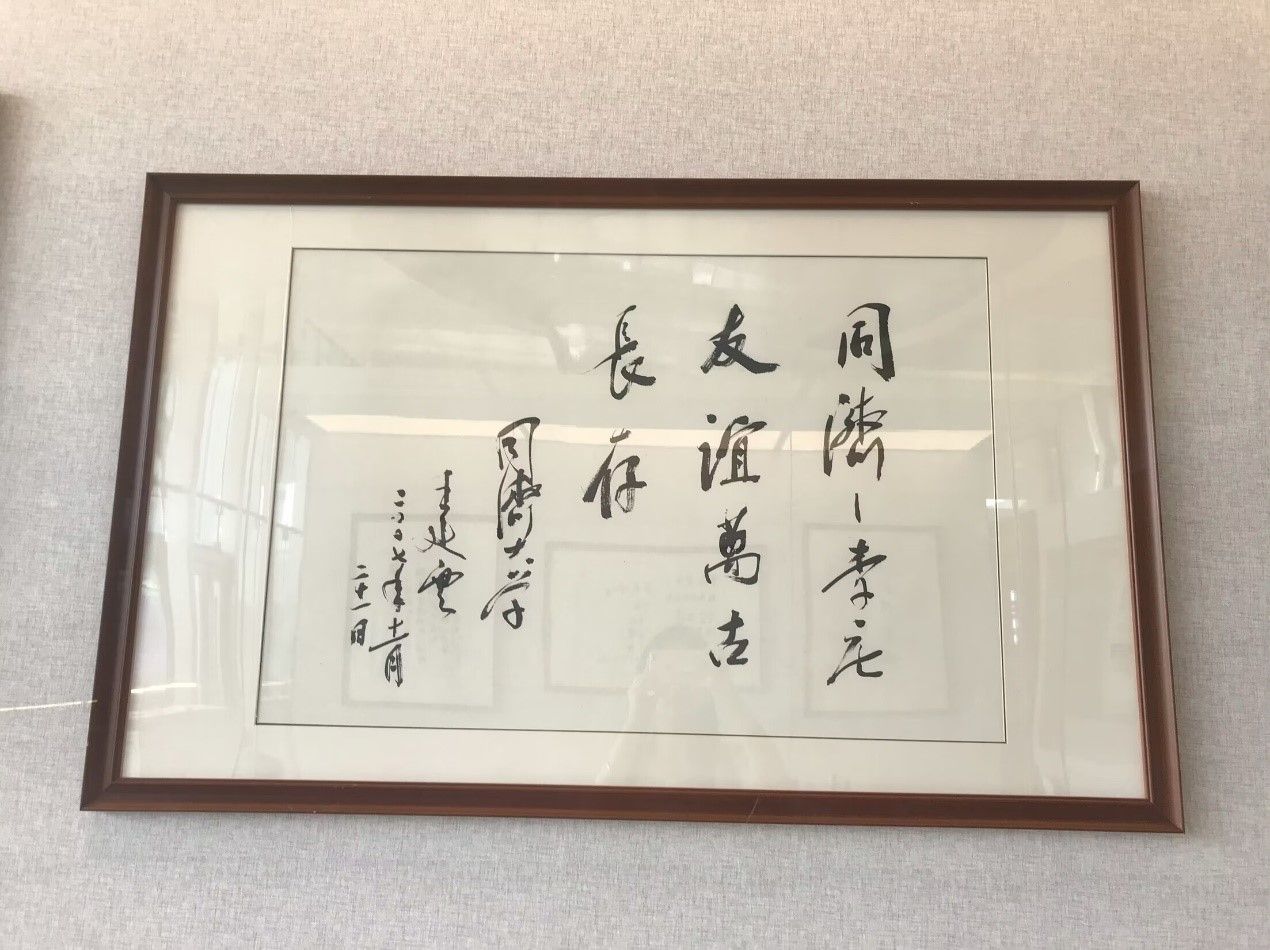 同濟—李庄
友誼萬古
長存
同濟大学
王建雲
二〇〇七年十一月
二十一日